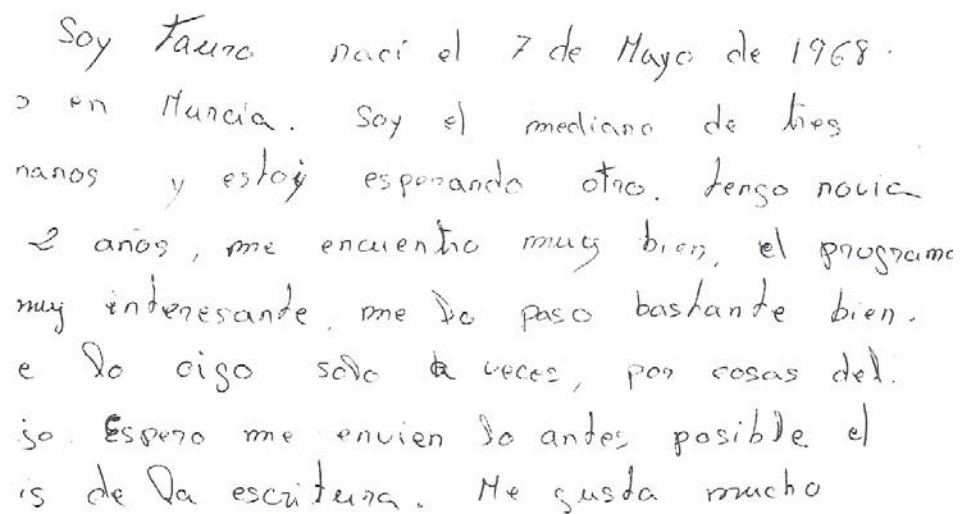 Soy Tauro nací el 7 de Mayo de 1968.
o en Murcia. Soy el mediano de tres
manos y estoy esperando otro. tengo novia
2 años, me encuentro muy bien, el programa
muy interesante, me lo paso bastante bien.
e lo oigo solo a veces, por cosas del.
jo. Espero me envien lo antes posible el
is de la escritura. Me gusta mucho